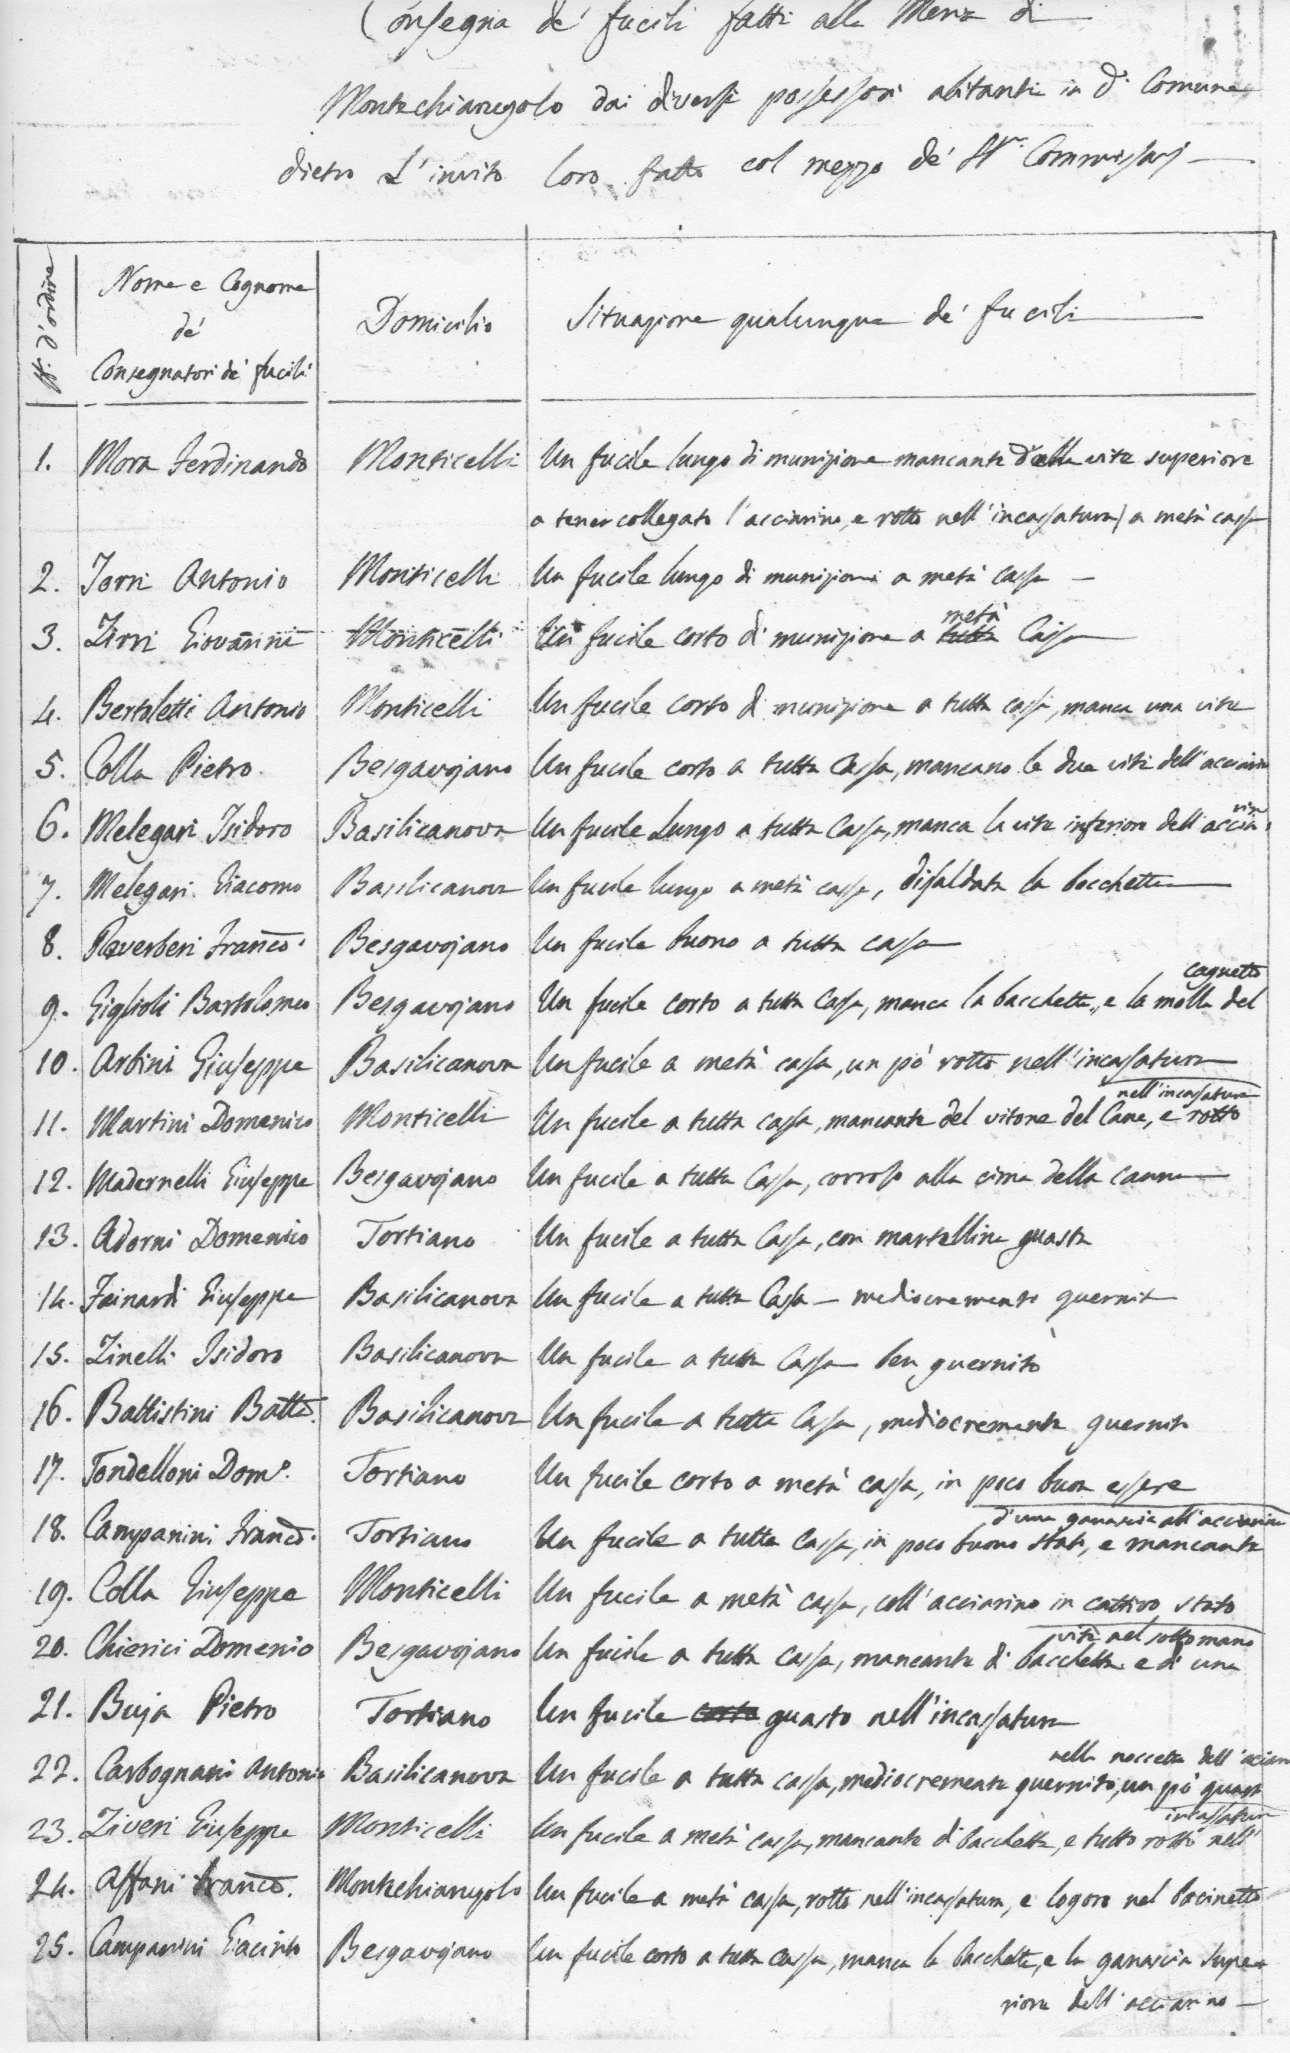 Consegna de' fucili fatti alla Merìa di
Montechiarugolo dai diversi possessori abitanti in d.º Comune
dietro L'invito loro fatto col mezzo de' SSri. Commissarj
N. d'ordine
Nome e Cognome
de'
Consegnatori de' fucili
Domicilio
Situazione qualunque de' fucili
1. Mora Ferdinando Monticelli Un fucile lungo di munizione mancante della vite superiore
a tener collegato l'acciarino, e rotto nell'incassatura a metà cassa
2. Torri Antonio Monticelli Un fucile lungo di munizioni a metà cassa
3. Zirri Giovanni Monticelli Un fucile corto di munizione a tutta metà Cassa
4. Bertoletti Antonio Monticelli Un fucile corto di munizione a tutta cassa, manca una vite
5. Colla Pietro Besgavojano Un fucile corto a tutta Cassa, mancano le due viti dell'acciarino
6. Melegari Isidoro Basilicanova Un fucile Lungo a tutta Cassa, manca la vite inferiore dell'acciarino
7. Melegari Giacomo Basilicanova Un fucile lungo a metà cassa, disaldata la bocchetta
8. Reverberi Franco. Besgavojano Un fucile buono a tutta cassa
9. Giglioli Bartolomeo Besgavojano Un fucile corto a tutta Cassa, manca la bacchetta, e la molla del
cagnetto
10. Arbini Giuseppe Basilicanova Un fucile a metà cassa, un pò rotto nell'incassatura
11. Martini Domenico Monticelli Un fucile a tutta cassa, mancante del vitone del Cane, e rotto
nell'incassatura
12. Madernelli Giuseppe Besgavojano Un fucile a tutta Cassa, corroso alla cima della canna
13. Adorni Domenico Tortiano Un fucile a tutta Cassa, con martellina guasta
14. Fainardi Giuseppe Basilicanova Un fucile a tutta Cassa - mediocremente guernito
15. Zinelli Isidoro Basilicanova Un fucile a tutta Cassa ben guernito
16. Battistini Batta. Basilicanova Un fucile a tutta Cassa, mediocremente guernito
17. Tondelloni Domo. Tortiano Un fucile corto a metà cassa, in poco buon essere
18. Campanini Franco. Tortiano Un fucile a tutta Cassa, in poco buono stato, e mancante
d'una ganascia all'acciarino
19. Colla Giuseppe Monticelli Un fucile a metà cassa, coll'acciarino in cattivo stato
20. Chierici Domenico Besgavojano Un fucile a tutta cassa, mancante di bacchetta e di una
vite nel sottomano
21. Buja Pietro Tortiano Un fucile corto guasto nell'incassatura
22. Carbognani Antonio Basilicanova Un fucile a tutta cassa, mediocremente guernito, un pò guasto
nella noccetta dell'acciarino
23. Ziveri Giuseppe Monticelli Un fucile a metà cassa, mancante di bacchetta, e tutto rotto nell'
incassatura
24. Affani Franco. Montechiarugolo Un fucile a metà cassa, rotto nell'incassatura, e logoro nel bacinetto
25. Campanini Giacinto Besgavojano Un fucile corto a tutta cassa, manca la bacchetta, e la ganascia supe=
riore dell'acciarino